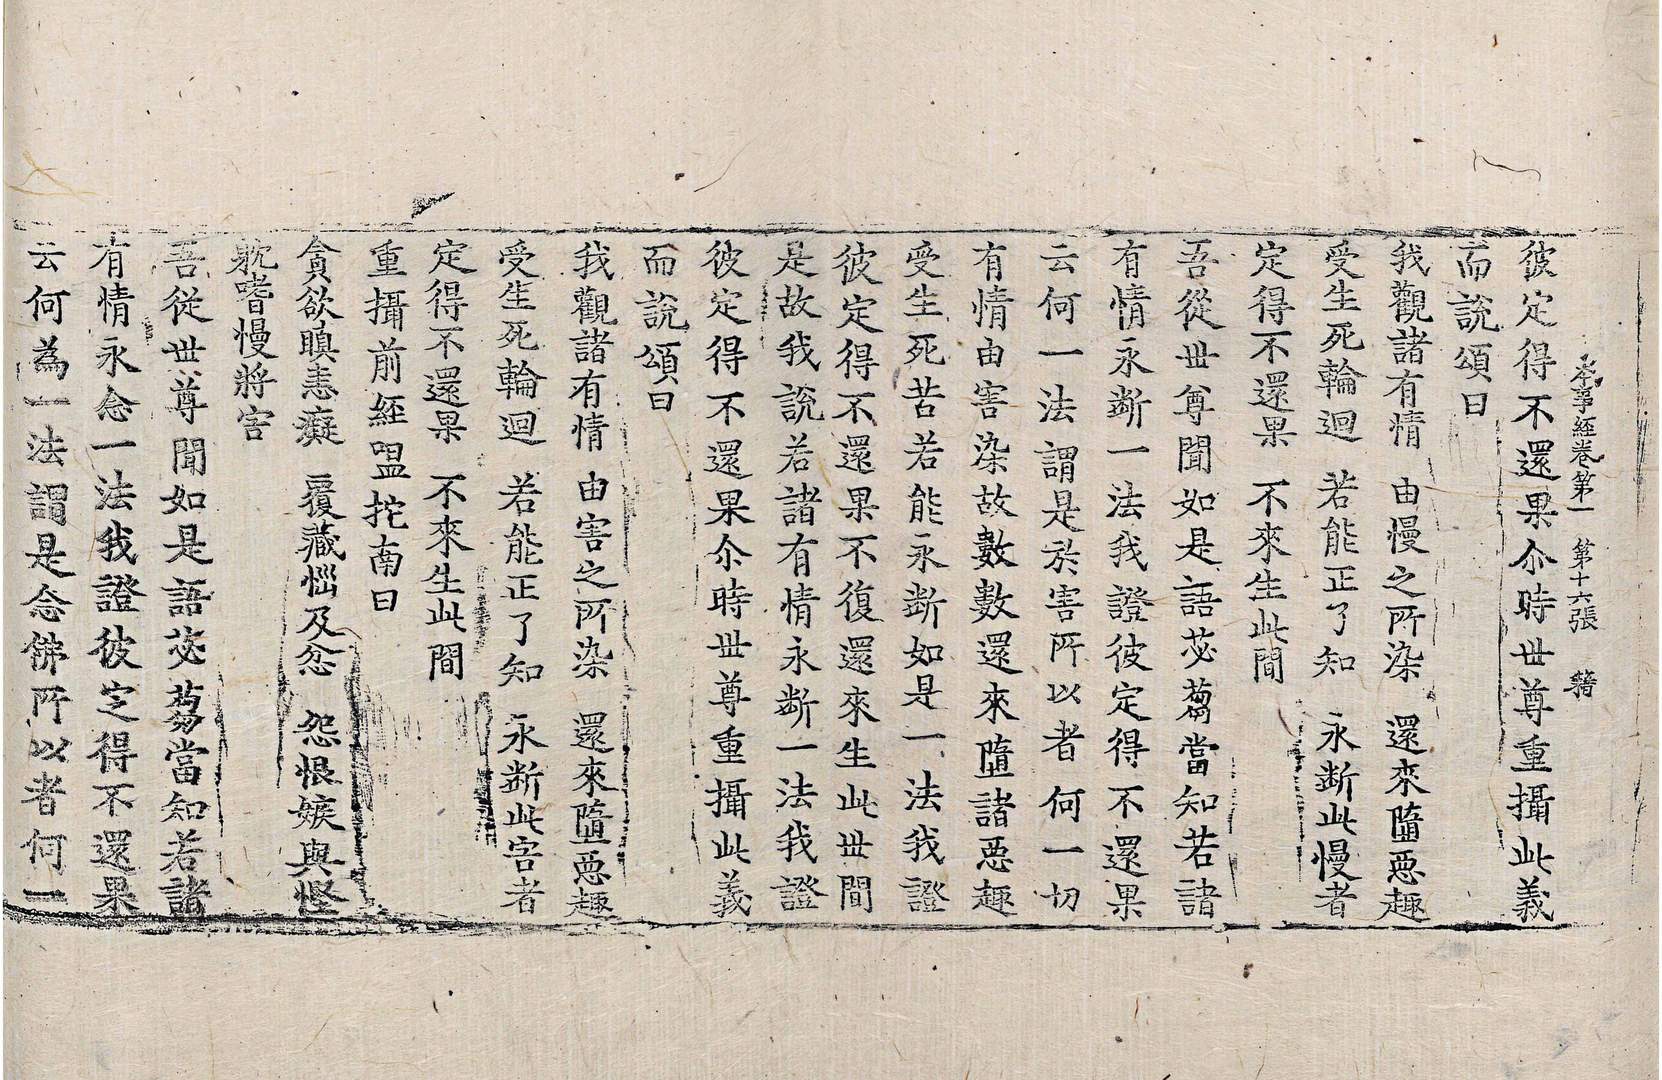 本事經卷第一 第十六張 籍
彼定得不還果尒時世尊重攝此義
而說頌曰
我觀諸有情 由慢之所染 還來墮惡趣
受生死輪迴 若能正了知 永斷此慢者
定得不還果 不來生此間
吾從世尊聞如是語苾蒭當知若諸
有情永斷一法我證彼定得不還果
云何一法謂是於害所以者何一切
有情由害染故數數還來墮諸惡趣
受生死苦若能永斷如是一法我證
彼定得不還果不復還來生此世間
是故我說若諸有情永斷一法我證
彼定得不還果尒時世尊重攝此義
而說頌曰
我觀諸有情 由害之所染 還來墮惡趣
受生死輪迴 若能正了知 永斷此害者
定得不還果 不來生此間
重攝前經嗢拕南曰
貪欲瞋恚癡 覆藏惱及忿 怨恨嫉與慳
躭嗜慢將害
吾從世尊聞如是語苾蒭當知若諸
有情永念一法我證彼定得不還果
云何為一法謂是念佛所以者何一